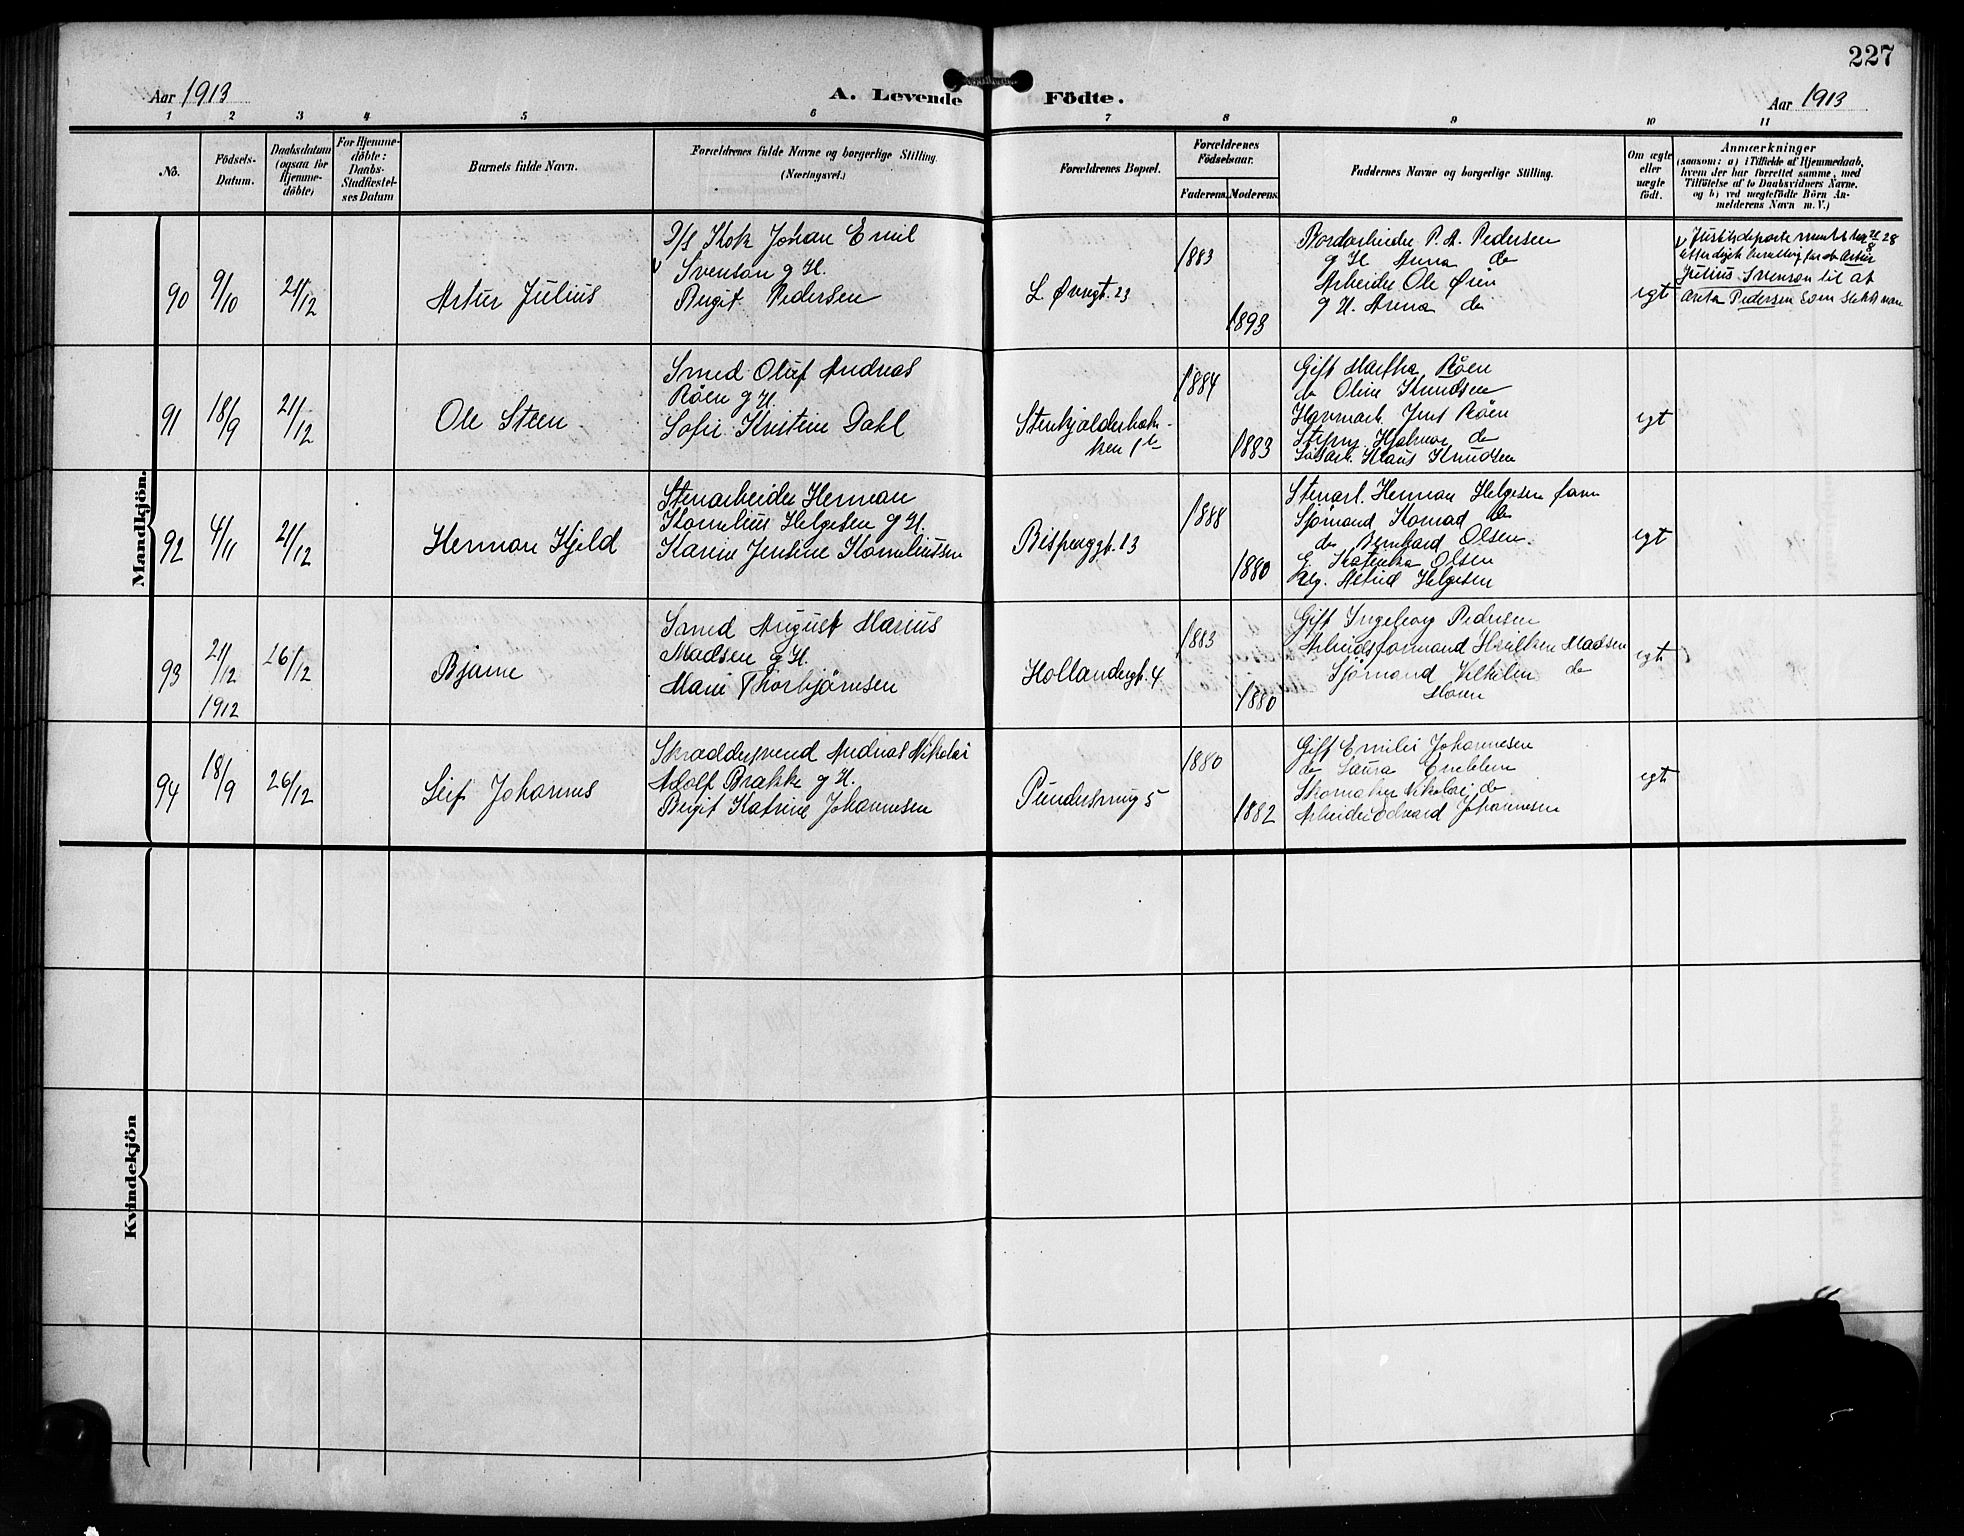 227
Aar 1913
A. Levende Födte.
Aar 1913
1 2 3 4 5 6 7 8 9 10 11
No.
Födsels-Datum.
Daabsdatum (ogsaa for Hjemme-döbte)
For Hjemme-döbte: Daabs-Stadfæstel-ses Datum
Barnets fulde Navn.
Forældrenes fulde Navne og borgerlige Stilling. (Næringsvei.)
Forældrenes Bopæl.
Forældrenes Födselsaar.
Faderens. Moderens.
Faddernes Navne og borgerlige Stilling.
Om ægte eller uægte födt.
Anmærkninger
(saasom: a) i Tilfælde af Hjemmedaab,
hvem der har forrettet samme, med
Tilföielse af to Daabsvidners Navne.
og b) ved uægtefödte Börn An-
melderens Navn m. V.)
Mandkjön.
90
9/10
21/12
Artur Julius
Kok Johan Emil
Svenson g H.
Birgit Pedersen
L Øvregt. 23
1883
1893
P. A. Pedersen
g H Anna do
Arbeider Ole Øien
g H. Anna do
egt
Julius Svenson til at
Pedersen som slektsnavn
91
18/9
21/12
Ole Steen
Smed Oluf Andreas
Røen g H.
Sofie Kristine Dahl
1884
1883
Gift Martha Røen
do Oline Knudsen
Jens Røen
Hjalmar do
Klaus Knudsen
egt
92
4/11
21/12
Herman Kjeld
Stenarbeider Herman
Kornelius Helgesen g H.
Karine Jentine Korneliussen
Bispenggt. 13
1888
1880
Stenarb. Herman Helgesen
Sjømand Konrad do
do Bernhard Olsen
Olsen
Astrid Helgesen
egt
93
21/12
1912
26/12
Bjarne
Smed August Marius
Madsen g H.
Marie Thorbjørnsen
Hollendergt. 4
1883
1880
Gift Ingeborg Pedersen
Arbeidsformand Madsen
Sjømand Vilhelm do
egt
94
18/9
26/12
Leif Johannes
Skräddersvend Andreas Nikolai
Adolf Brække g H.
Birgit Katrine Johannesen
5
1880
1882
Gift Emilie Johannesen
do Laura
Skomaker Nikolai do
Arbeider Edvard Johannesen
egt
Kvindekjön